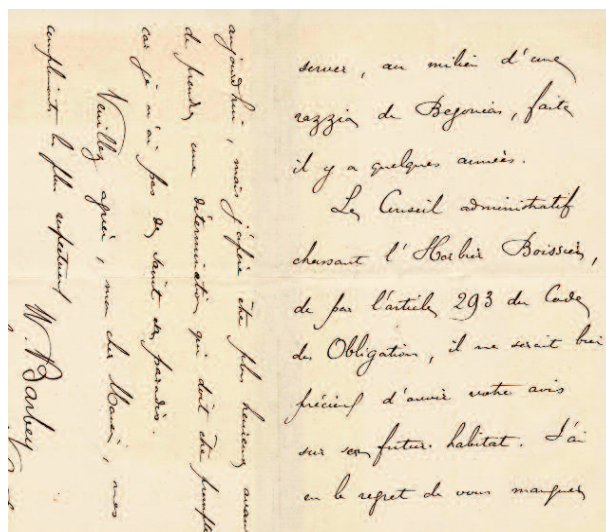 server, au milieu d'une
razzia de Begonias, faite
il y a quelques années.
Le Conseil administratif
chassant l'Herbier Boissier,
de par l'article 293 du Code
des Obligations, il me serait bien
précieux d'avoir votre avis
sur son futur habitat. J'ai
eu le regret de vous manquer
aujourd'hui, mais j'espère être plus heureux avant
de prendre une détermination qui doit être prompte
car je n'ai pas de saint en paradis.
Veuillez agréer, mon cher Monsieur, mes
compliments les plus respectueux
W. Barbey